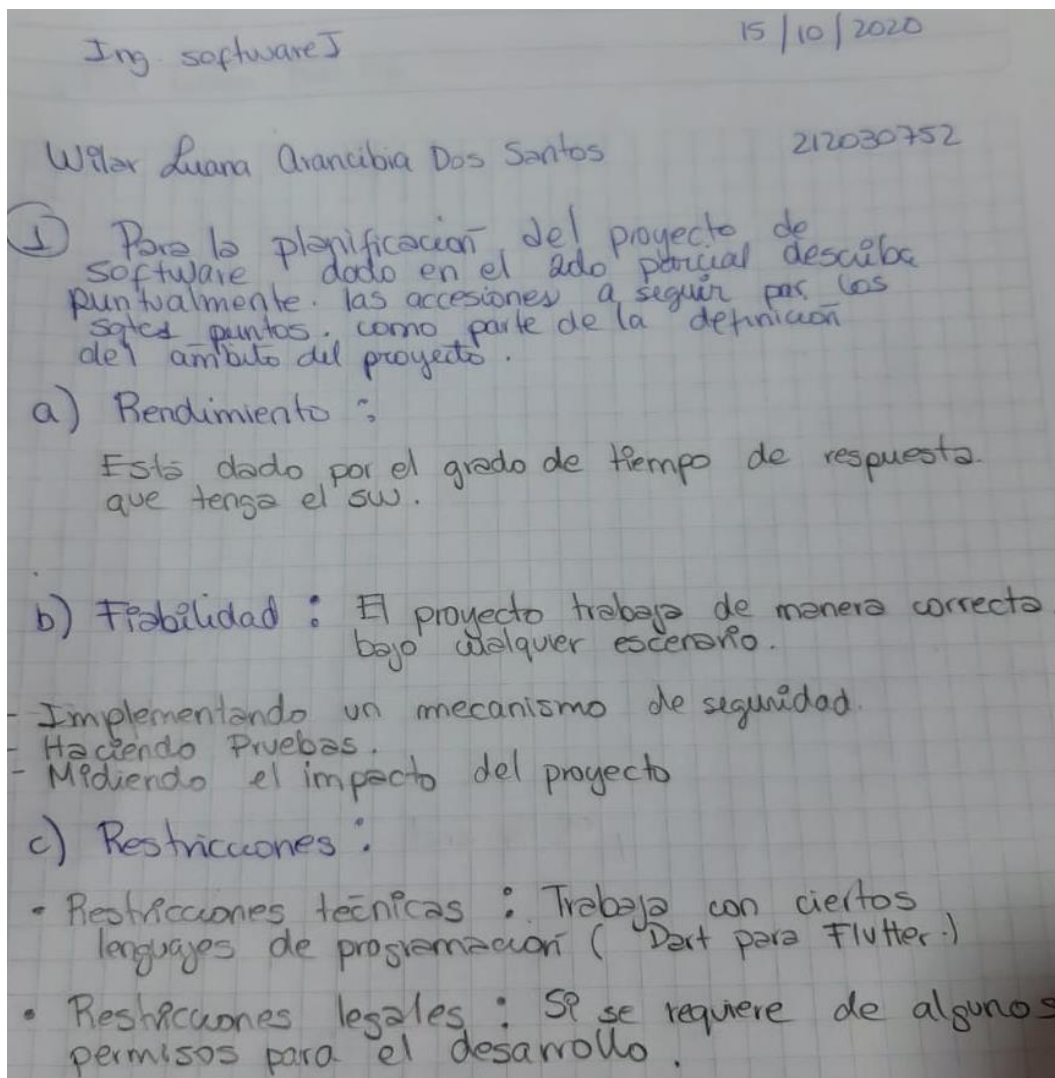 Ing. software I
15/10/2020
Wilar Luana Arancibia Dos Santos
212030752
① Para la planificación del proyecto de
software dado en el 2do parcial describa
puntualmente. las accesiones a seguir por los
sgtes puntos. como parte de la definición
del ambito del proyecto.
a) Rendimiento :
Está dado por el grado de tiempo de respuesta.
que tenga el sw.
b) Fiabilidad : El proyecto trabaja de manera correcta
bajo cualquier escenario.
- Implementando un mecanismo de seguridad.
- Haciendo Pruebas.
- Midiendo el impacto del proyecto
c) Restricciones :
• Restricciones técnicas : Trabaja con ciertos
lenguajes de programación ( Dart para Flutter.)
• Restricciones legales : Si se requiere de algunos
permisos para el desarrollo.